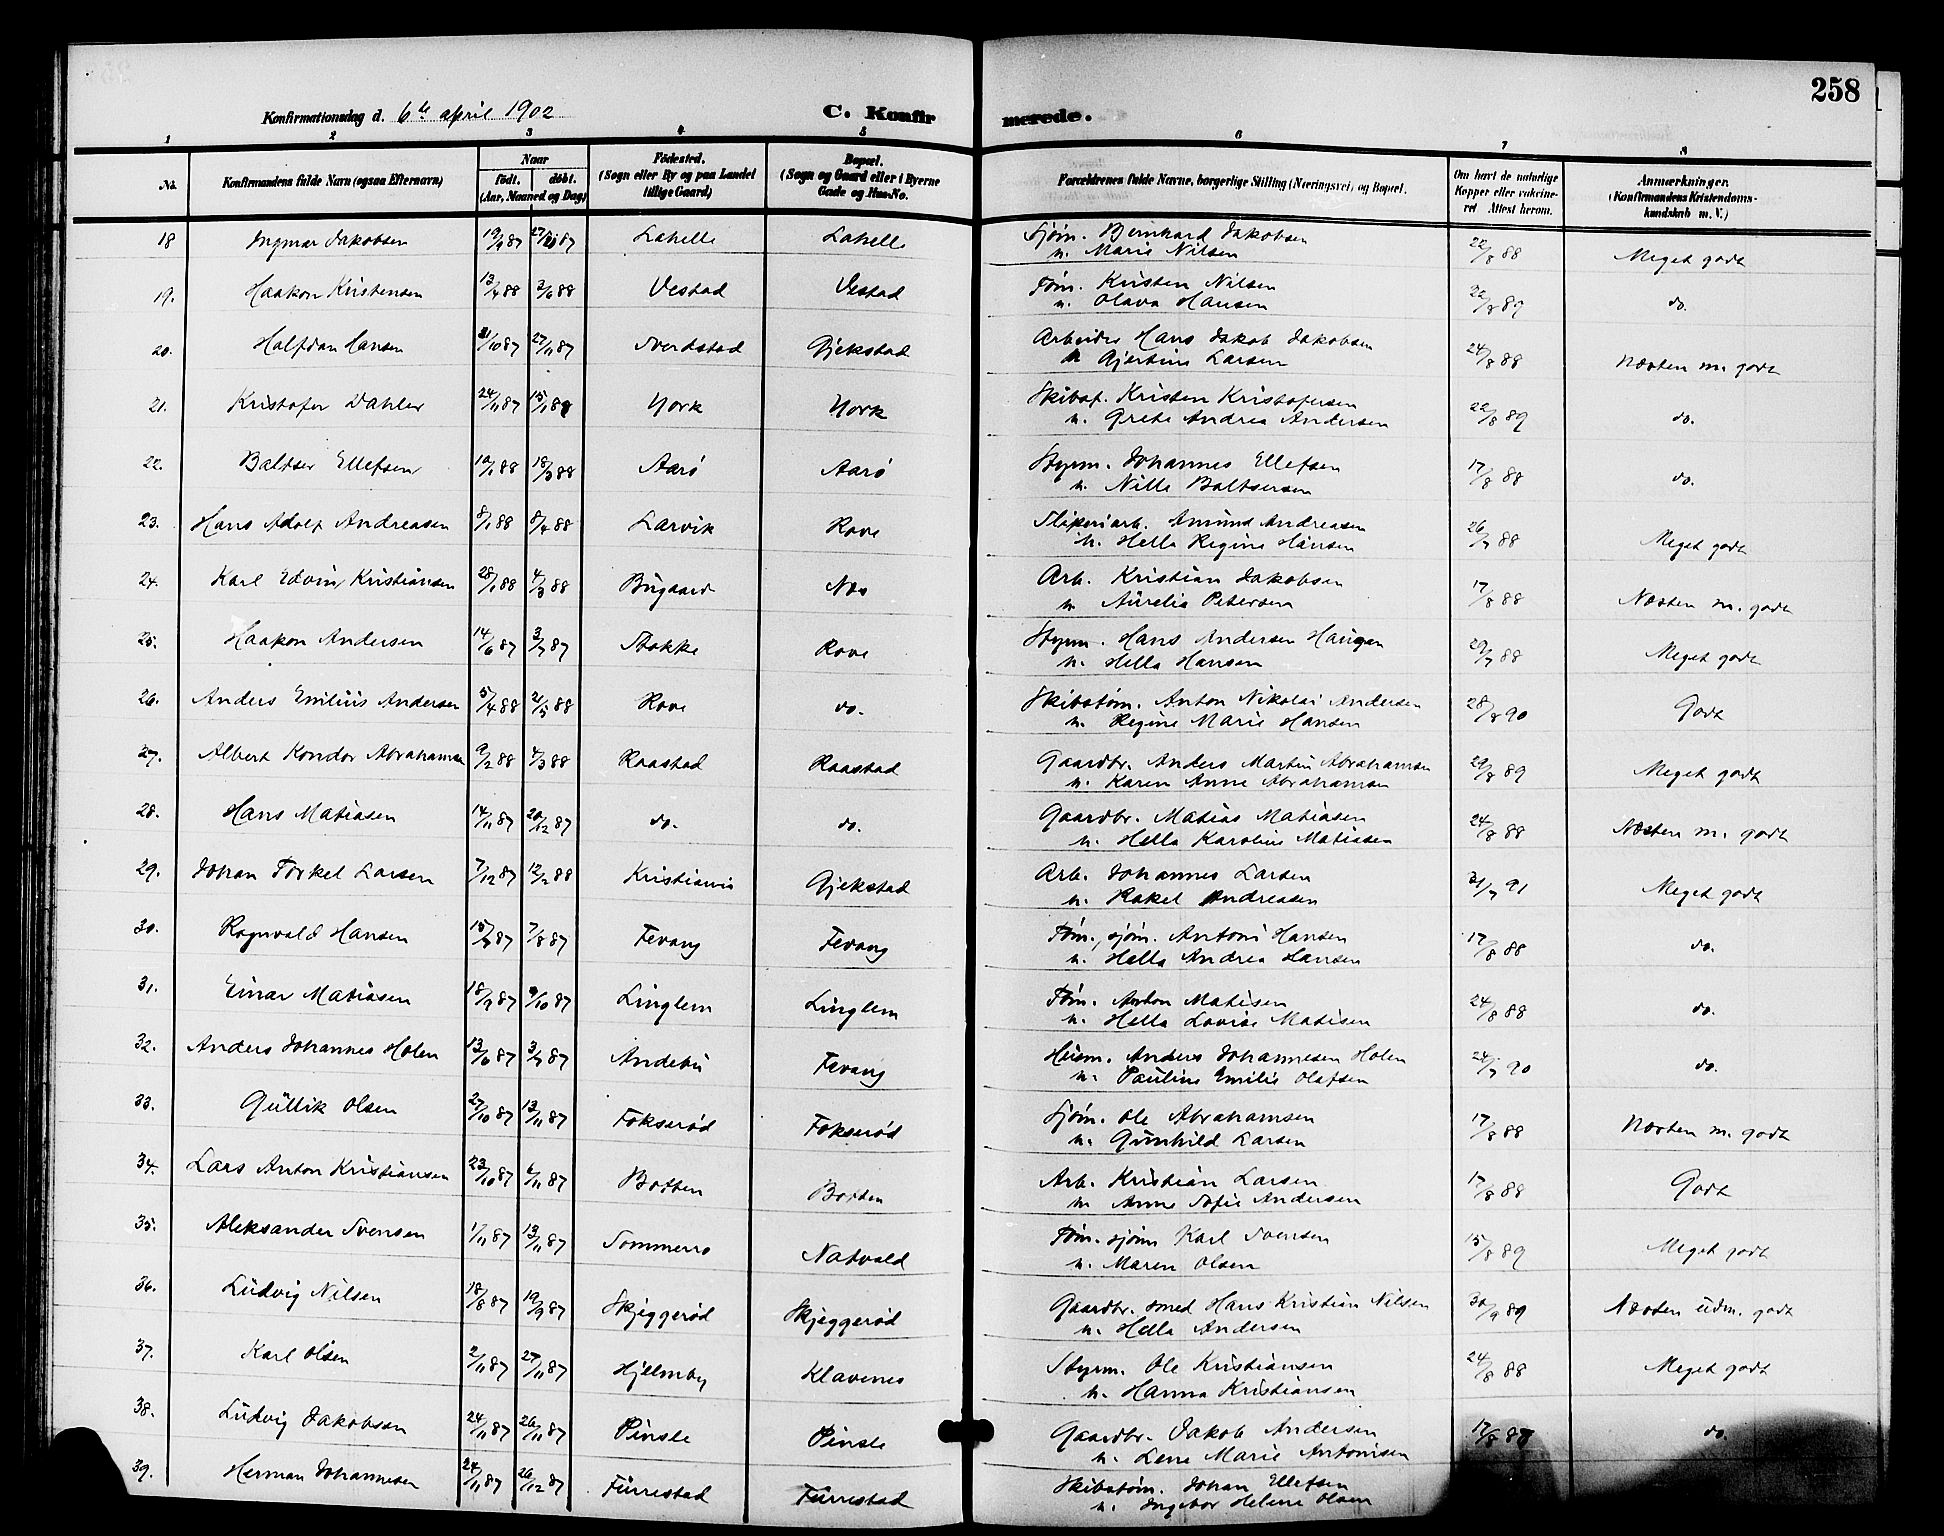 258
Konfirmationsdag d. 6te april 1902 C. Konfirmerede.
1 2 3 4 5 6 7 8
No. Konfirmandens fulde Navn (ogsaa Efternavn) Naar födt. döbt. (Aar, Maaned og Dag) Födested. (Sogn eller By og paa Landet tillige Gaard) Bopæl. (Sogn og Gaard eller i Byerne Gade og Hus-No. Forældrenes fulde Navne, borgerlige Stilling (Næringsvei) og Bopæl. Om havt de naturlige Kopper eller vakcineret Attest herom. Anmærkninger. (Konfirmandens Kristendomskundskab m. V.)
18 Ingmar Jakobsen 19/9 87 Lahelle Lahelle Sjøm. Bernhard Jakobsen 22/8 88 Meget godt
u. Marie Nilsen
19. Haakon Kristensen 13/4 88 3/6 88 Vestad Vestad Tøm. Kristen Nilsen 22/8 89 do.
u. Olava Hansen
20. Halfdan Hansen 31/10 87 27/11 87 Sverdstad Gjekstad Arbeider Hans Jakob Jakobsen 24/8 88 Næsten m. godt
u. Gjertine Larsen
21. Kristofer Dahler 24/11 87 15/1 88 York York Skibsf. Kristen Kristofersen 22/8 89 do.
u. Grete Andrea Andersen
22. Baltser Ellefsen 10/1 88 18/3 88 Aarø Aarø Styrm. Johannes Ellefsen 17/8 88 do.
u. Nille Baltsersen
23. Hans Adolf Andreasen 8/1 88 8/4 88 Larvik Rove Sliperiarb. Amund Andreasen 26/7 88 Meget godt
u. Helle Regine Hansen
24. Karl Edvin Kristiansen 28/1 88 4/3 88 Bugaard Nes Arb. Kristian Jakobsen 17/8 88 Næsten m. godt
u. Aurelia Petersen
25. Haakon Andersen 14/6 87 3/7 87 Stokke Rove Styrm. Hans Andersen Haugen 29/7 88 Meget godt
u. Hella Hansen
26. Anders Emilius Andersen 5/4 88 21/5 88 Rove do. Skibstøm. Anton Nikolai Andersen 28/8 90 Godt
u. Regine Marie Hansen
27. Albert Kondor Abrahamsen 9/2 88 4/3 88 Raastad Raastad Gaardbr. Anders Martin Abrahamsen 29/8 89 Meget godt
u. Karen Anne Abrahamsen
28. Hans Matiasen 14/11 87 20/12 87 do. do. Gaardbr. Matias Matiasen 24/8 88 Næsten m. godt
u. Hella Karoline Matiasen
29. Johan Torkel Larsen 7/12 87 12/2 88 Kristiania Gjekstad Arb. Johannes Larsen 31/7 91 Meget godt
u. Rakel Andreasen
30. Ragnvald Hansen 15/7 87 7/8 87 Fevang Fevang Tøm., sjøm. Antoni Hansen 17/8 88 do.
u. Hella Andrea Hansen
31. Einar Matiasen 18/9 87 9/10 87 Linglem Linglem Tøm. Anton Matisen 24/8 88 do.
u. Hella Lovise Matisen
32. Anders Johannes Holen 13/6 87 3/7 87 Andebu Fevang Husm. Anders Johannesen Holen 24/7 90 do.
u. Pauline Emilie Olafsen
33. Gullik Olsen 27/10 87 13/11 87 Fokserød Fokserød Sjøm. Ole Abrahamsen 17/8 88 Næsten m. godt
u. Gunhild Larsen
34. Lars Anton Kristiansen 23/10 87 6/11 87 Botten Botten Arb. Kristian Larsen 17/8 88 Godt
u. Anne Sofie Andersen
35. Aleksander Svensen 1/11 87 13/11 87 Sommerro Natvald Tøm. sjøm Karl Svensen 15/8 89 Meget godt
u. Maren Olsen
36. Ludvig Nilsen 18/8 87 19/9 87 Skjeggerød Skjeggerød Gaardbr. smed Hans Kristian Nilsen 30/9 89 Næsten udm. godt
u. Hella Andersen
37. Karl Olsen 2/11 87 27/11 87 Hjelmby Klavenes Styrm. Ole Kristiansen 24/8 88 Meget godt
u. Hanna Kristiansen
38. Ludvig Jakobsen 24/11 87 26/11 87 Pinsle Pinsle Gaardbr. Jakob Andersen 17/8 88 do.
u. Lene Marie Antonisen
39. Herman Johannesen 24/11 87 26/12 87 Furrestad Furrestad Skibstøm. Johan Ellefsen
u. Ingebor Helene Olsen